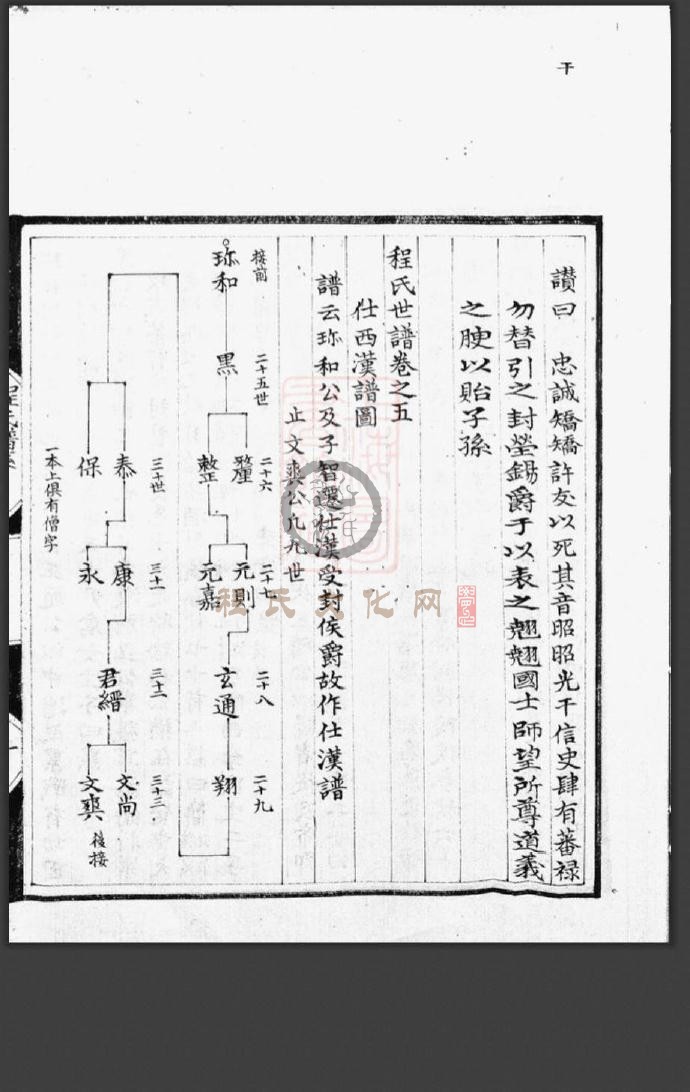 干
讃曰 忠誠矯矯許友以死其音昭昭光干信史肆有蕃祿
勿替引之封塋錫爵于以表之翹翹國士師望所尊道義
之腴以貽子孫
程氏世譜卷之五
仕西漢譜圖
譜云珎和公及子智遷仕漢受封侯爵故作仕漢譜
止文奭公凡九世
接前
二十五世
二十六
二十七
二十八
二十九
珎和
黑
釐
整
元則
元嘉
玄通
翔
三十世
三十一
三十二
三十三
泰
保
康
永
君縉
文尚
文奭
後接
一本上俱有僧字
程氏文化网